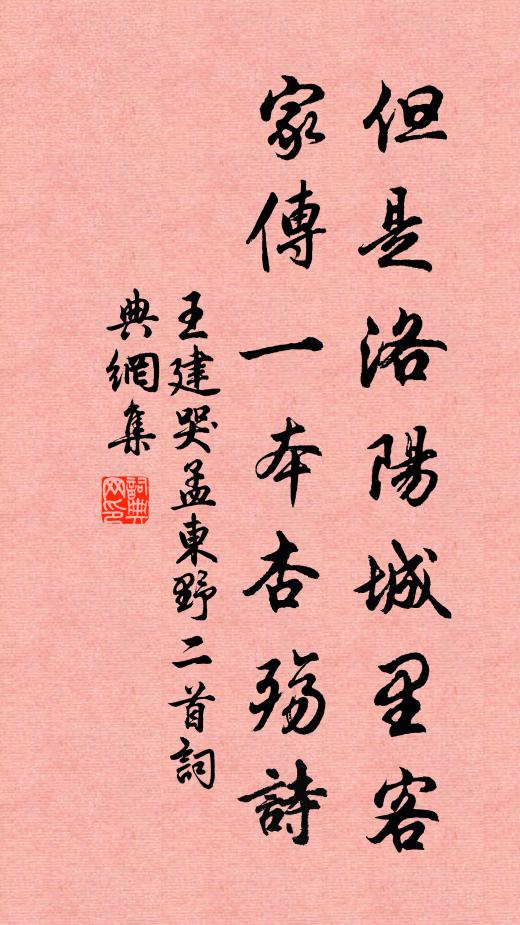 但是洛陽城里客
家傳一本杏殤詩
王建哭孟東野二首詞
典網集
詞典網印